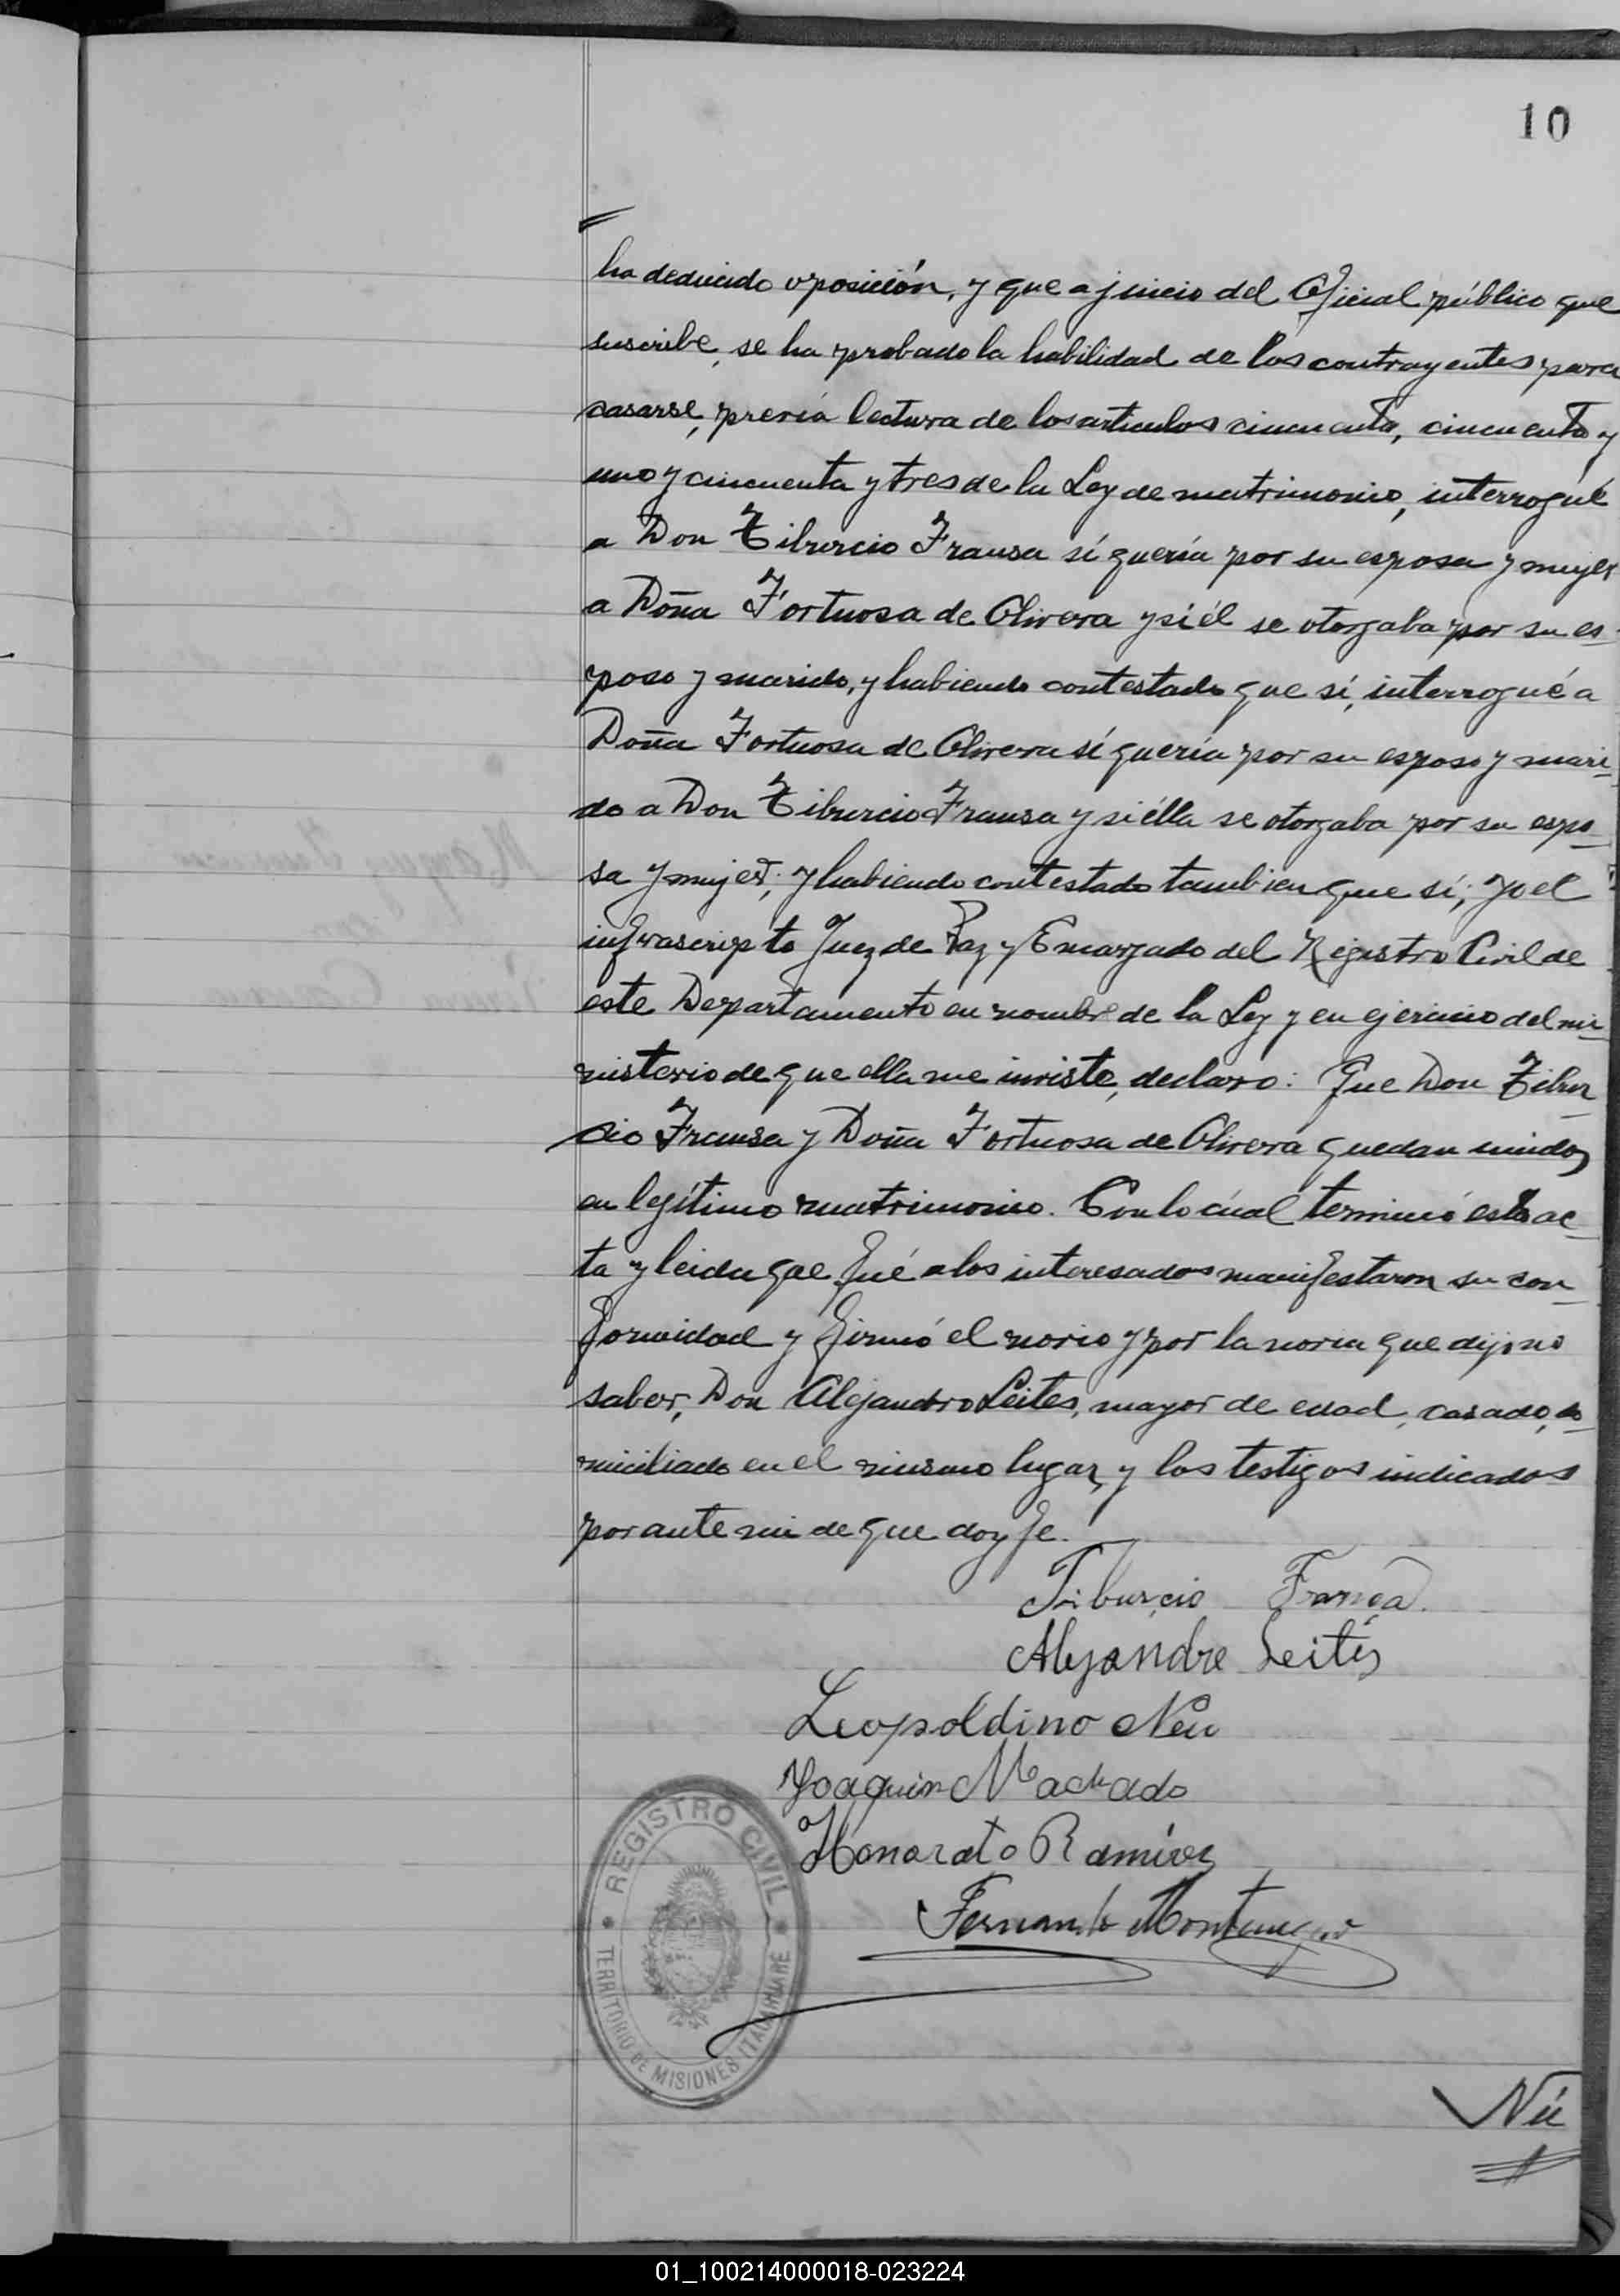 10
ha deducido oposición, y que a juicio del Oficial público que
suscribe, se ha probado la habilidad de los contrayentes para
casarse, previa lectura de los artículos cincuenta, cincuenta y
uno y cincuenta y tres de la Ley de matrimonio, interrogué
a Don Tiburcio Fransa sí quería por su esposa y mujer
a Doña Fortuosa de Olivera y sí él se otorgaba por su es-
poso y marido, y habiendo contestado que sí, interrogué a
Doña Fortuosa de Olivera sí quería por su esposo y mari-
do a Don Tiburcio Fransa y si élla se otorgaba por su espo-
sa y mujer; y habiendo contestado tambien que sí; yo el
infrascripto Juez de Paz y Encargado del Registro Civil de
este Departamento en nombre de la Ley y en ejercicio del mi-
nisterio de que ella me inviste, declaro: Que Don Tibur-
cio Fransa y Doña Fortuosa de Olivera quedan unidos
en legítimo matrimonio. Con lo cúal terminó esta ac-
ta y leida que fué a los interesados manifestaron su con-
formidad y firmó el novio y por la novia que dijo no
saber, Don Alejandro Leites, mayor de edad, casado, do-
miciliado en el mismo lugar, y los testigos indicados
por ante mi de que doy fe.
Tiburcio França.
Alejandre Leites
Leopoldino Neu
Joaquin Machado
Honorato Ramirez
Fernando Montenegro
REGISTRO CIVIL
TERRITORIO DE MISIONES ITACARUARE
Nú
01_100214000018-023224